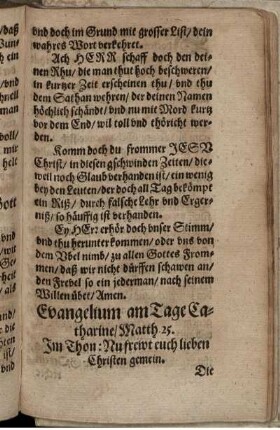 vnd doch im Grund mit grosser List/ dein
wahres Wort verkehret.
Ach HERR schaff doch den dei-
nen Rhu/ die man thut hoch beschweren/
in kurtzer Zeit erscheinen thu/ vnd thu
dem Sathan wehren/ der deinen Namen
höchlich schändt/ vnd nu mit Mord kurtz
vor dem End/ wil toll vnd thöricht wer-
den.
Komm doch du frommer JESV
Christ/ in diesen gschwinden Zeiten/ die-
weil noch Glaub verhanden ist/ ein wenig
bey den Leuten/ der doch all Tag bekömpt
ein Riß/ durch falsche Lehr vnd Erger-
niß/ so häuffig ist verhanden.
Ey HErr erhör doch vnser Stimm/
vnd thu herunter kommen/ oder vns von
dem Vbel nimb/ zu allen Gottes From-
men/ daß wir nicht dürffen schawen an/
den Frevel so ein jederman/ nach seinem
Willen übet/ Amen.
Evangelium am Tage Ca-
tharine/ Matth 25.
Im Thon: Nu frewt euch lieben
Christen gemein.
Die